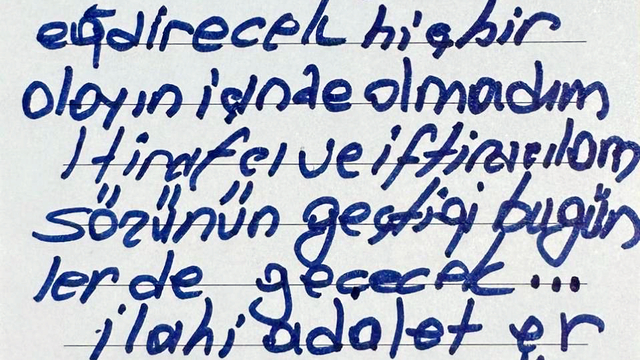 eğdirecek hiçbir
olayın içinde olmadım
Itirafcı ve iftiracılom
sözünün geçtiği bugün
lerde geçecek...
ilahi adalet er